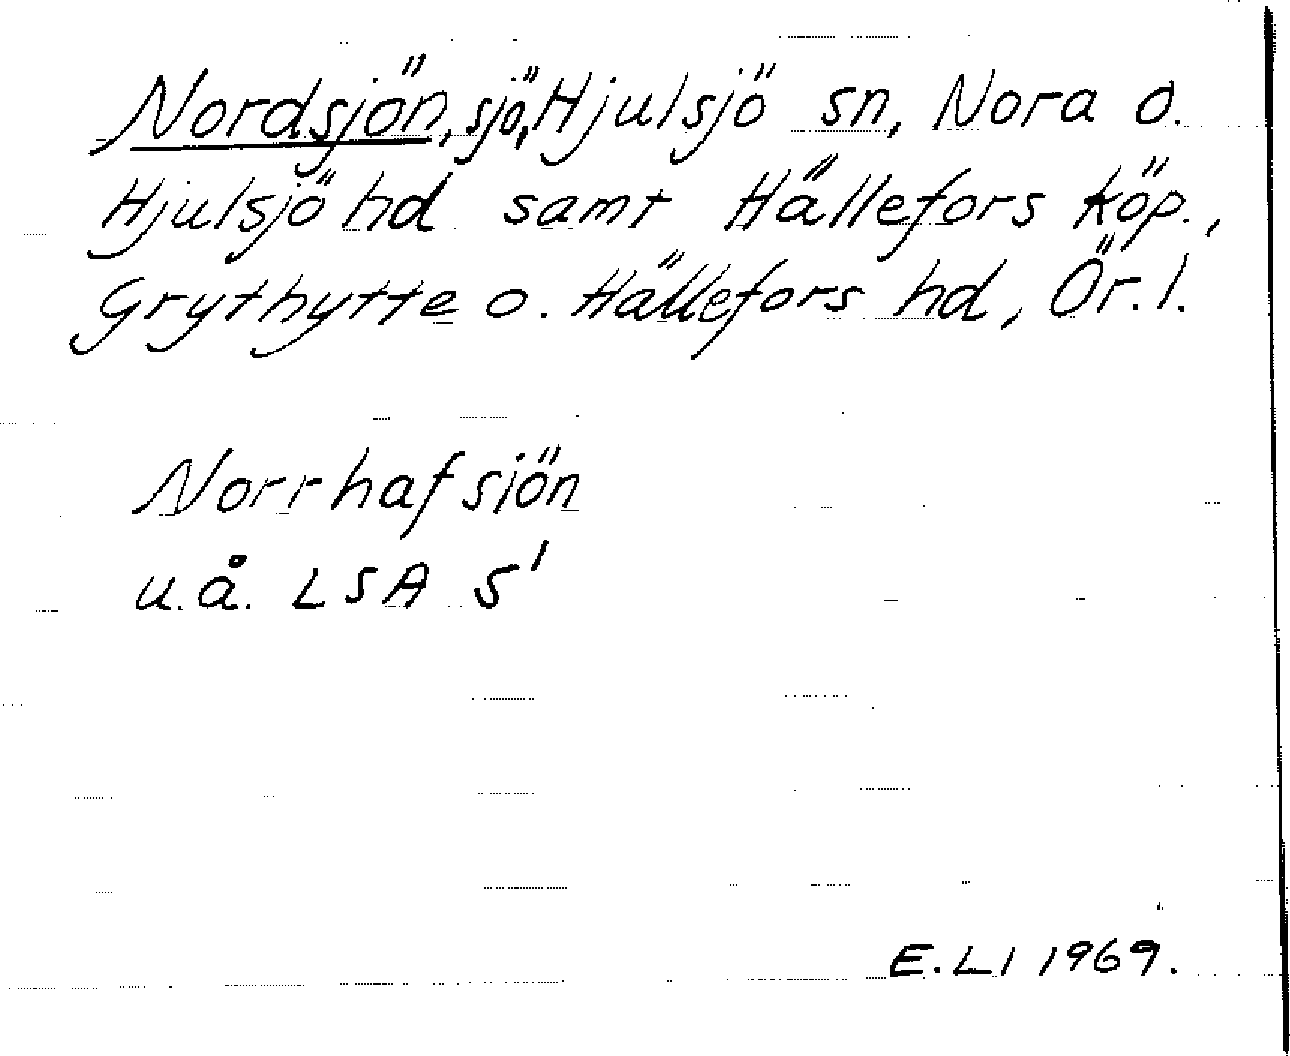 Nordsjön, sjö, Hjulsjö sn, Nora o.
Hjulsjö hd samt Hällefors köp.,
Grythytte o. Hällefors hd, Ör. l.
Norrhafsiön
u.å. LSA S1
E.LI 1969.